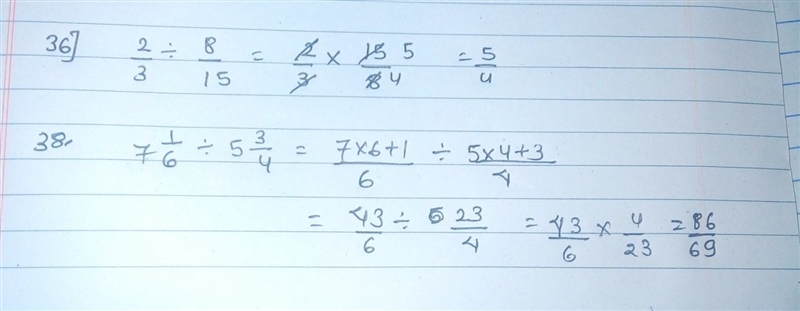 36] 2/3 ÷ 8/15 = 2/3 × 15/8 5 4 = 5/4
38. 7 1/6 ÷ 5 3/4 = 7×6+1/6 ÷ 5×4+3/4
= 43/6 ÷ 23/4 = 43/6 × 4/23 = 86/69